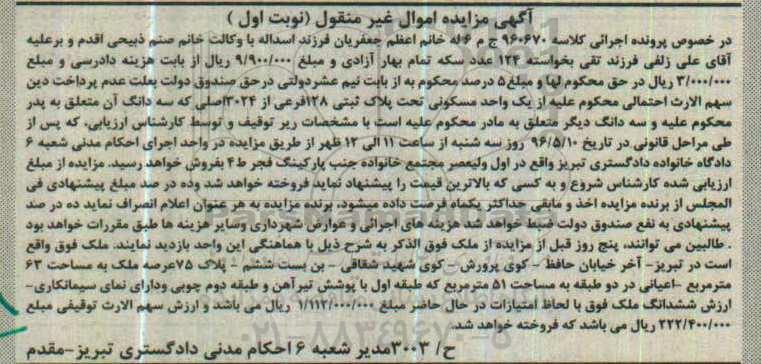 آگهی مزایده اموال غیر منقول (نوبت اول )
در خصوص پرونده اجرائی کلاسه ۹۶۰۶۷۰ ج م ۶ له خانم اعظم جعفریان فرزند اسداله با وکالت خانم صنم ذبیحی اقدم و برعلیه
آقای علی زلفی فرزند تقی بخواسته ۱۲۴ عدد سکه تمام بهار آزادی و مبلغ ۹/۹۰۰/۰۰۰ ریال از بابت هزینه دادرسی و مبلغ
۳/۰۰۰/۰۰۰ ریال در حق محکوم لها و مبلغ۵ درصد محکوم به از بابت نیم عشردولتی درحق صندوق دولت بعلت عدم پرداخت دین
سهم الارث احتمالی محکوم علیه از یک واحد مسکونی تحت پلاک ثبتی ۱۲۸فرعی از ۳۰۲۴اصلی که سه دانگ آن متعلق به پدر
محکوم علیه و سه دانگ دیگر متعلق به مادر محکوم علیه است با مشخصات زیر توقیف و توسط کارشناس ارزیابی، که پس از
طی مراحل قانونی در تاریخ ۹۶/۵/۱۰ روز سه شنبه از ساعت ۱۱ الی ۱۲ ظهر از طریق مزایده در واحد اجرای احکام مدنی شعبه ۶
دادگاه خانواده دادگستری تبریز واقع در اول ولیعصر مجتمع خانواده جنب پارکینگ فجر ط۴ بفروش خواهد رسید. مزایده از مبلغ
ارزیابی شده کارشناس شروع و به کسی که بالاترین قیمت را پیشنهاد نماید فروخته خواهد شد وده در صد مبلغ پیشنهادی فی
المجلس از برنده مزایده اخذ و مابقی حداکثر یکماه فرصت داده میشود، برنده مزایده به هر عنوان اعلام انصراف نماید ده در صد
پیشنهادی به نفع صندوق دولت ضبط خواهد شد هزینه های اجرائی و عوارض شهرداری وسایر هزینه ها طبق مقررات خواهد بود
. طالبین می توانند، پنج روز قبل از مزایده از ملک فوق الذکر به شرح ذیل با هماهنگی این واحد بازدید نمایند. ملک فوق واقع
است در تبریز- آخر خیابان حافظ - کوی پرورش - کوی شهید شقاقی - بن بست ششم - پلاک ۷۵عرصه ملک به مساحت ۶۳
مترمربع -اعیانی در دو طبقه به مساحت ۵۱ مترمربع که طبقه اول با پوشش تیرآهن و طبقه دوم چوبی ودارای نمای سیمانکاری-
ارزش ششدانگ ملک فوق با لحاظ امتیازات در حال حاضر مبلغ ۱/۱۱۲/۰۰۰/۰۰۰ ریال می باشد و ارزش سهم الارث توقیفی مبلغ
۲۲۲/۴۰۰/۰۰۰ ریال می باشد که فروخته خواهد شد.
ح/ ۳۰۰۳مدیر شعبه ۶ احکام مدنی دادگستری تبریز-مقدم
ParsNamadData
۰۲۱-۸۸۳۴۹۶۷۰-۵